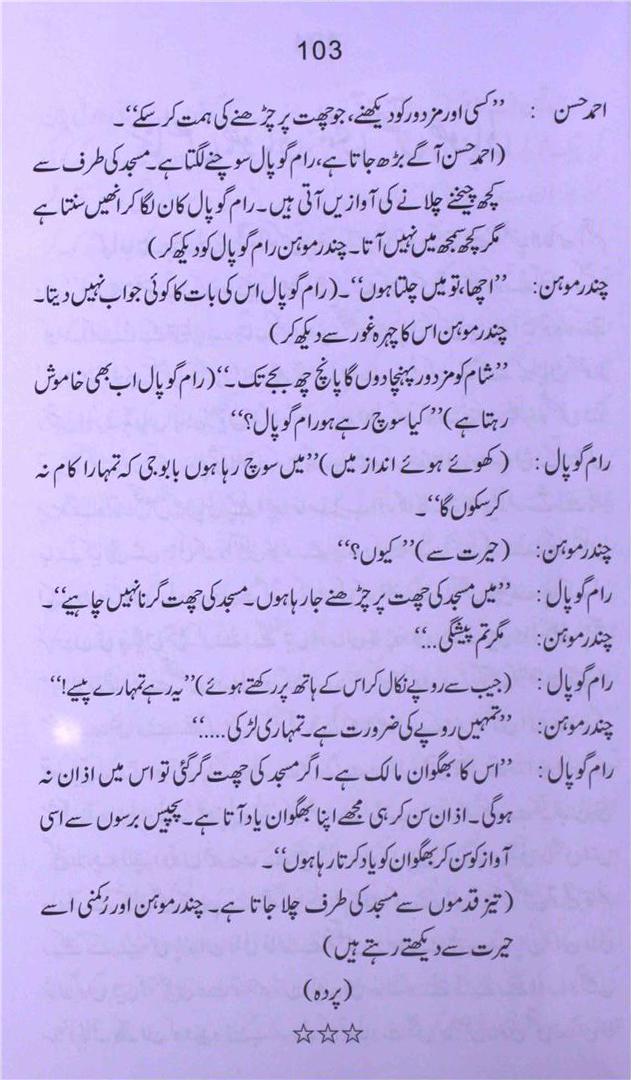 103
احمد حسن : ”کسی اور مزدور کو دیکھنے، جو چھت پر چڑھنے کی ہمت کر سکے“۔
(احمد حسن آگے بڑھ جاتا ہے، رام گوپال سوچنے لگتا ہے۔ مسجد کی طرف سے
کچھ چیخنے چلانے کی آوازیں آتی ہیں۔ رام گوپال کان لگا کر انھیں سنتا ہے
مگر کچھ سمجھ میں نہیں آتا۔ چندر موہن رام گوپال کو دیکھ کر)
چندر موہن: ”اچھا، تو میں چلتا ہوں“۔ (رام گوپال اس کی بات کا کوئی جواب نہیں دیتا۔
چندر موہن اس کا چہرہ غور سے دیکھ کر)
”شام کو مزدور پہنچا دوں گا پانچ چھ بجے تک۔“ (رام گوپال اب بھی خاموش
رہتا ہے) ”کیا سوچ رہے ہو رام گوپال؟“
رام گوپال : (کھوئے ہوئے انداز میں) ”میں سوچ رہا ہوں بابو جی کہ تمہارا کام نہ
کر سکوں گا“۔
چندر موہن: (حیرت سے) ”کیوں؟“
رام گوپال : ”میں مسجد کی چھت پر چڑھنے جا رہا ہوں۔ مسجد کی چھت گرنا نہیں چاہیے“۔
چندر موہن: مگر تم پیشگی...“
رام گوپال : (جیب سے روپے نکال کر اس کے ہاتھ پر رکھتے ہوئے) ”یہ رہے تمہارے پیسے!“
چندر موہن: ”تمہیں روپے کی ضرورت ہے۔ تمہاری لڑکی....“
رام گوپال : ”اس کا بھگوان مالک ہے۔ اگر مسجد کی چھت گر گئی تو اس میں اذان نہ
ہوگی۔ اذان سن کر ہی مجھے اپنا بھگوان یاد آتا ہے۔ پچیس برسوں سے اسی
آواز کو سن کر بھگوان کو یاد کرتا رہا ہوں“۔
(تیز قدموں سے مسجد کی طرف چلا جاتا ہے۔ چندر موہن اور رُکمنی اسے
حیرت سے دیکھتے رہتے ہیں)
(پردہ)
☆☆☆